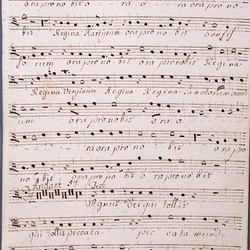 ora pro no bis o ra o ra ora pro no
bis Regina Martyrum ora pro no bis Confes
so rum ora pro no bis ora pro nobis Regina
Regina Virginum Regina Regina Sanctorum omni
um ora pro nobis o ra
ra ora pro no bis ora pro
no bis ora pro no bis o ra pro no bis
Andante
Agnus Dei qui tollis
qui tollis peccata pec cata mundi